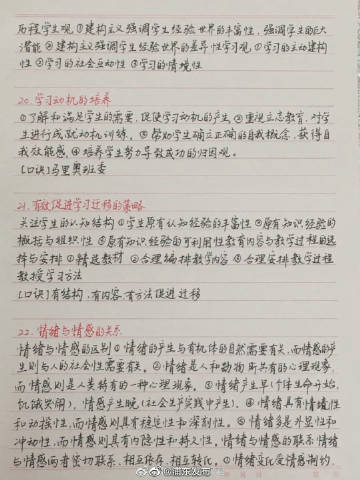 历程学生观①建构主义强调学生经验世界的丰富性，强调学生的巨大
潜能②建构主义强调学生经验世界的差异性学习观①学习的主动建构
性②学习的社会互动性③学习的情境性
20.学习动机的培养
①了解和满足学生的需要，促使学习动机的产生②重视立志教育，对学
生进行成就动机训练。③帮助学生确立正确的自我概念，获得自
我效能感。④培养学生努力导致成功的归因观。
[口诀]马里奥班委
21.有效促进学习迁移的策略
关注学生的认知结构①学生原有认知经验的丰富性②原有知识经验的
概括与组织性③原有知识经验的可利用性教育内容与教学过程的选
择与安排①精选教材②合理编排教学内容③合理安排教学过程
教授学习方法
[口诀]有结构，有内容，有方法促进迁移
22.情绪与情感的关系
情绪与情感的区别①情绪的产生与有机体的自然需要有关，而情感的产
生则与人的社会性需要有关。②情绪是人和动物所共有的心理现象，
而情感则是人类特有的一种心理现象。③情绪产生早(个体生命开始，
饥饿哭闹)，情感产生晚(社会生产实践中产生)。④情绪具有情境性
和动摇性，而情感则具有稳定性和深刻性。⑤情绪多是外显性和
冲动性，而情感则具有内隐性和持久性。情绪与情感的联系 情绪
与情感两者密切联系、相互依存、相互转化。①情绪变化受情感制约，
@油东发布